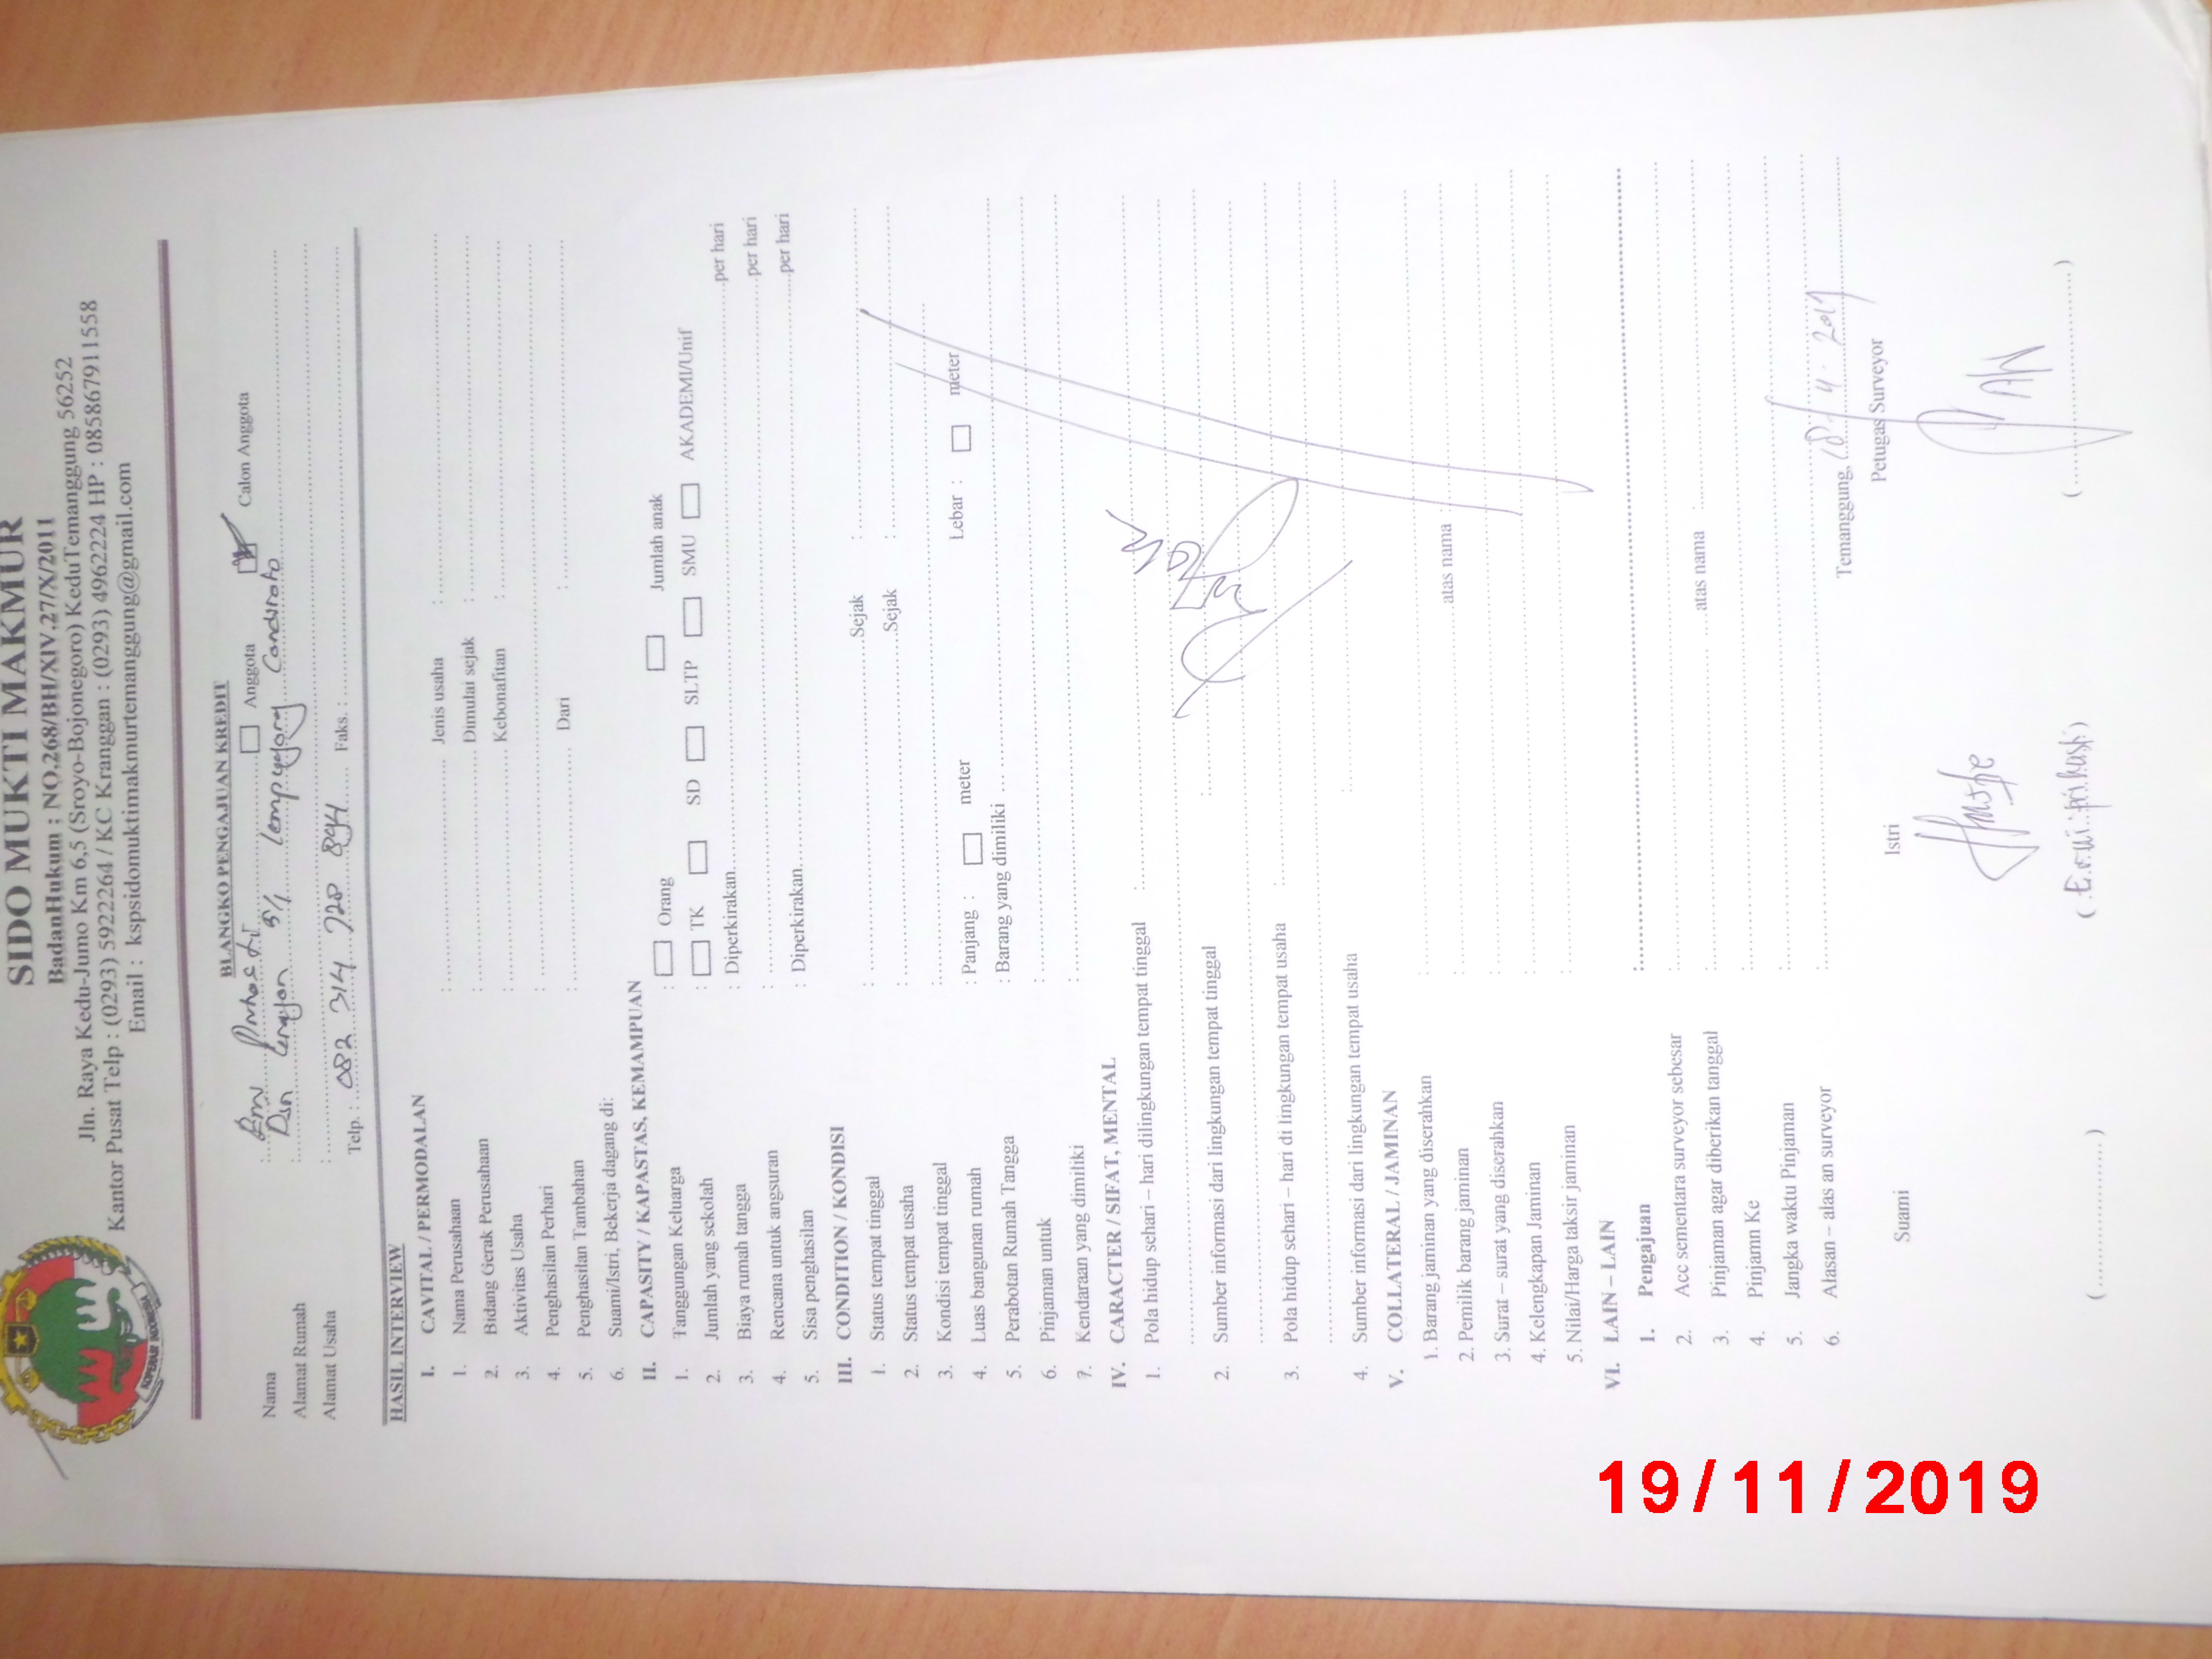 SIDO MUKTI MAKMUR
BadanHukum : NO.268/BH/XIV.27/X/2011
Jln. Raya Kedu-Jumo Km 6,5 (Sroyo-Bojonegoro) KeduTemanggung 56252
Kantor Pusat Telp : (0293) 5922264 / KC Kranggan : (0293) 4962224 HP : 085867911558
Email : kspsidomuktimakmurtemanggung@gmail.com
KOPERASI INDONESIA
BLANGKO PENGAJUAN KREDIT
Nama : Anggota Calon Anggota
Alamat Rumah : Dsn 5/1
Alamat Usaha :
Telp. : 082 314 720 Faks. :
HASIL INTERVIEW
I. CAVITAL / PERMODALAN
1. Nama Perusahaan : Jenis usaha :
2. Bidang Gerak Perusahaan : Dimulai sejak :
3. Aktivitas Usaha : Kebonafitan :
4. Penghasilan Perhari :
5. Penghasilan Tambahan : Dari :
6. Suami/Istri, Bekerja dagang di:
II. CAPASITY / KAPASTAS, KEMAMPUAN
1. Tanggungan Keluarga : Orang Jumlah anak
2. Jumlah yang sekolah : TK SD SLTP SMU AKADEMI/Unif
3. Biaya rumah tangga : Diperkirakan per hari
4. Rencana untuk angsuran : per hari
5. Sisa penghasilan : Diperkirakan per hari
III. CONDITION / KONDISI
1. Status tempat tinggal : Sejak :
2. Status tempat usaha : Sejak :
3. Kondisi tempat tinggal :
4. Luas bangunan rumah : Panjang : meter Lebar : meter
5. Perabotan Rumah Tangga : Barang yang dimiliki
6. Pinjaman untuk :
7. Kendaraan yang dimiliki :
IV. CARACTER / SIFAT, MENTAL
1. Pola hidup sehari – hari dilingkungan tempat tinggal :
2. Sumber informasi dari lingkungan tempat tinggal :
3. Pola hidup sehari – hari di lingkungan tempat usaha :
4. Sumber informasi dari lingkungan tempat usaha :
V. COLLATERAL / JAMINAN
1. Barang jaminan yang diserahkan :
2. Pemilik barang jaminan : atas nama
3. Surat – surat yang diserahkan :
4. Kelengkapan Jaminan :
5. Nilai/Harga taksir jaminan :
VI. LAIN – LAIN
1. Pengajuan :
2. Acc sementara surveyor sebesar :
3. Pinjaman agar diberikan tanggal : atas nama
4. Pinjamn Ke :
5. Jangka waktu Pinjaman :
6. Alasan – alas an surveyor :
Temanggung,
Suami Istri Petugas Surveyor
(..............) (..............)
19/11/2019